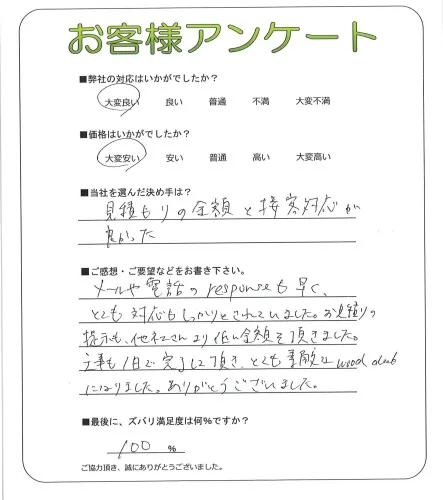 お客様アンケート
■弊社の対応はいかがでしたか?
大変良い 良い 普通 不満 大変不満
■価格はいかがでしたか?
大変安い 安い 普通 高い 大変高い
■当社を選んだ決め手は?
見積もりの金額と接客対応が
良かった
■ご感想・ご要望などをお書き下さい。
メールや電話のresponseも早く、
とても対応もしっかりとされていました。お見積りの
提示も、他社さんより低い金額を頂きました。
工事も1日で完了して頂き、とても素敵なwood
になりました。ありがとうございました。
■最後に、ズバリ満足度は何%ですか?
100 %
ご協力頂き、誠にありがとうございました。